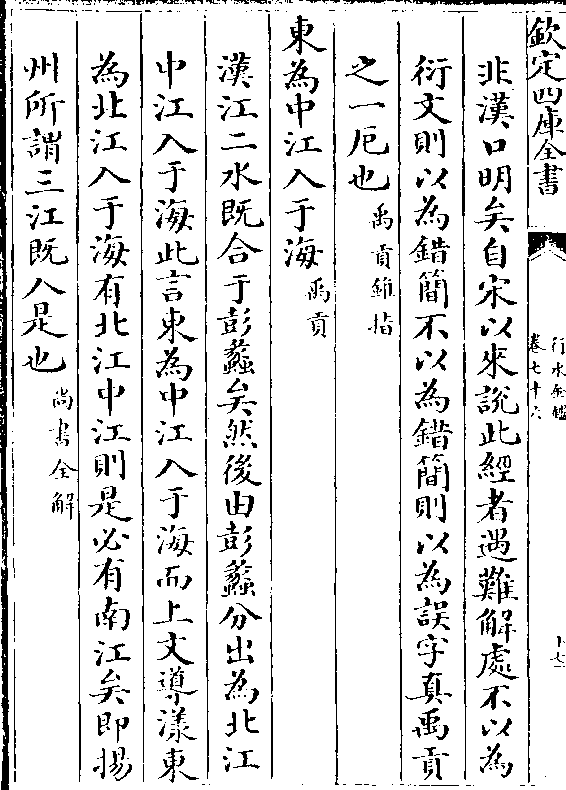 欽定四庫全書
行水金鑑
卷七十六
非漢口明矣自宋以來說此經者遇難解處不以為
衍文則以為錯簡不以為錯簡則以為誤字真禹貢
之一厄也禹貢錐指
東為中江入于海禹貢
漢江二水既合于彭蠡矣然後由彭蠡分出為北江
中江入于海此言東為中江入于海而上文導漾東
為北江入于海有北江中江則是必有南江矣即揚
州所謂三江既入是也尚書全解